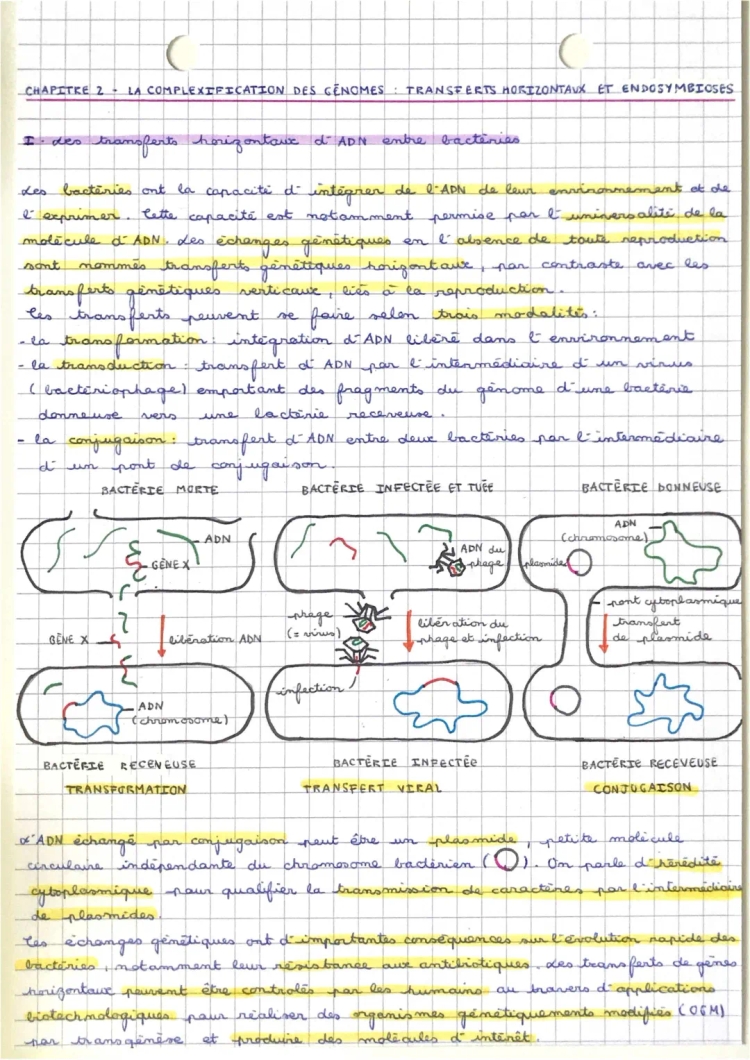 CHAPITRE 2 - LA COMPLEXIFICATION DES GÉNOMES : TRANSFERTS HORIZONTAUX ET ENDOSYMBIOSES
I. des transferts horizontaux d'ADN entre bactéries
Les bactéries ont la capacité d'intégrer de l'ADN de leur environnement et de
l'exprimer. Cette capacité est notamment permise par l'universalité de la
molécule d'ADN. Les échanges génétiques en l'absence de toute reproduction
sont nommés transferts génétiques horizontaux, par contraste avec les
transferts génétiques verticaux, liés à la reproduction.
Ces transferts peuvent se faire selon trois modalités :
- la transformation : intégration d'ADN libéré dans l'environnement
- la transduction : transfert d'ADN par l'intermédiaire d'un virus
(bactériophage) emportant des fragments du génome d'une bactérie
donneuse vers une bactérie receveuse.
- la conjugaison : transfert d'ADN entre deux bactéries par l'intermédiaire
d'un pont de conjugaison.
BACTÉRIE MORTE
ADN
GÈNE X
GÈNE X
libération ADN
ADN
(chromosome)
BACTÉRIE RECEVEUSE
TRANSFORMATION
BACTÉRIE INFECTÉE ET TUÉE
ADN du
phage
phage
(= virus)
libération du
phage et infection
infection
BACTÉRIE INFECTÉE
TRANSFERT VIRAL
BACTÉRIE DONNEUSE
ADN
(chromosome)
plasmide
pont cytoplasmique
transfert
de plasmide
BACTÉRIE RECEVEUSE
CONJUGAISON
L'ADN échangé par conjugaison peut être un plasmide, petite molécule
circulaire indépendante du chromosome bactérien ( ). On parle d'hérédité
cytoplasmique pour qualifier la transmission de caractères par l'intermédiaire
de plasmides.
Ces échanges génétiques ont d'importantes conséquences sur l'évolution rapide des
bactéries, notamment leur résistance aux antibiotiques. Les transferts de gènes
horizontaux peuvent être contrôlés par les humains au travers d'applications
biotechnologiques pour réaliser des organismes génétiquements modifiés (OGM)
par transgénèse et produire des molécules d'intérêt.